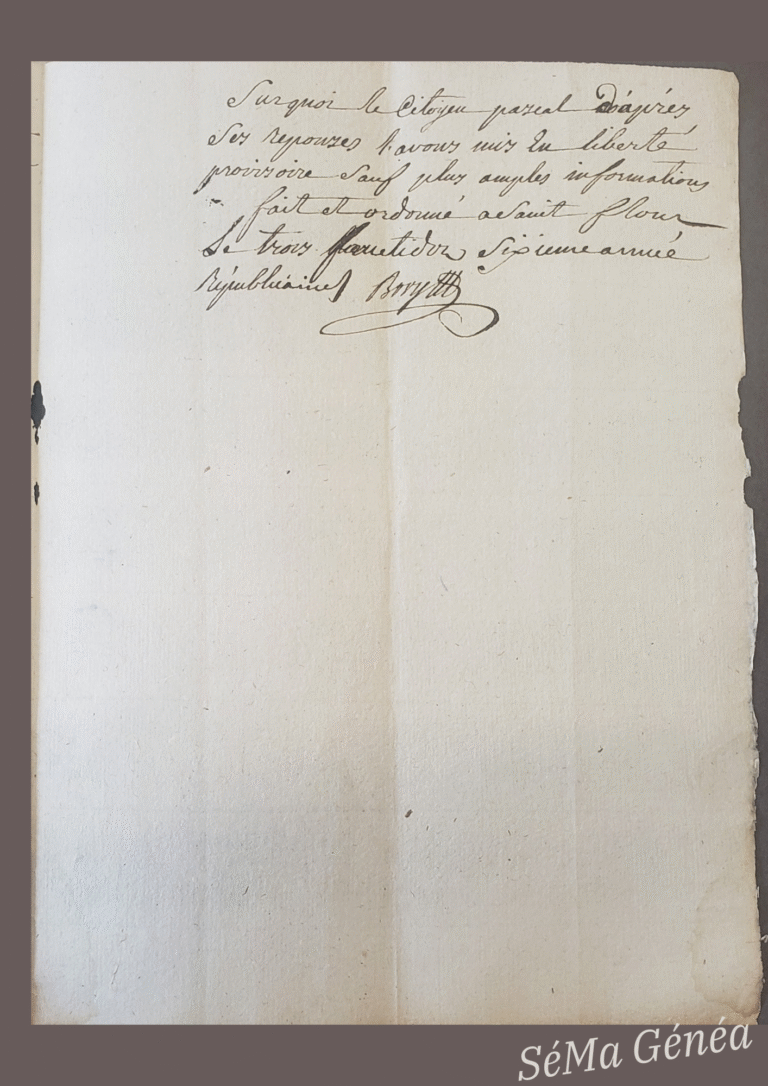 Surquoi le Citoyen pascal D'après
Ses reponzes l'avons mis En liberté
provizoire Sauf plus amples informations
fait et ordonné a Saint flour
Le trois fructidor Sixieme année
Républicaine
SéMa Généa